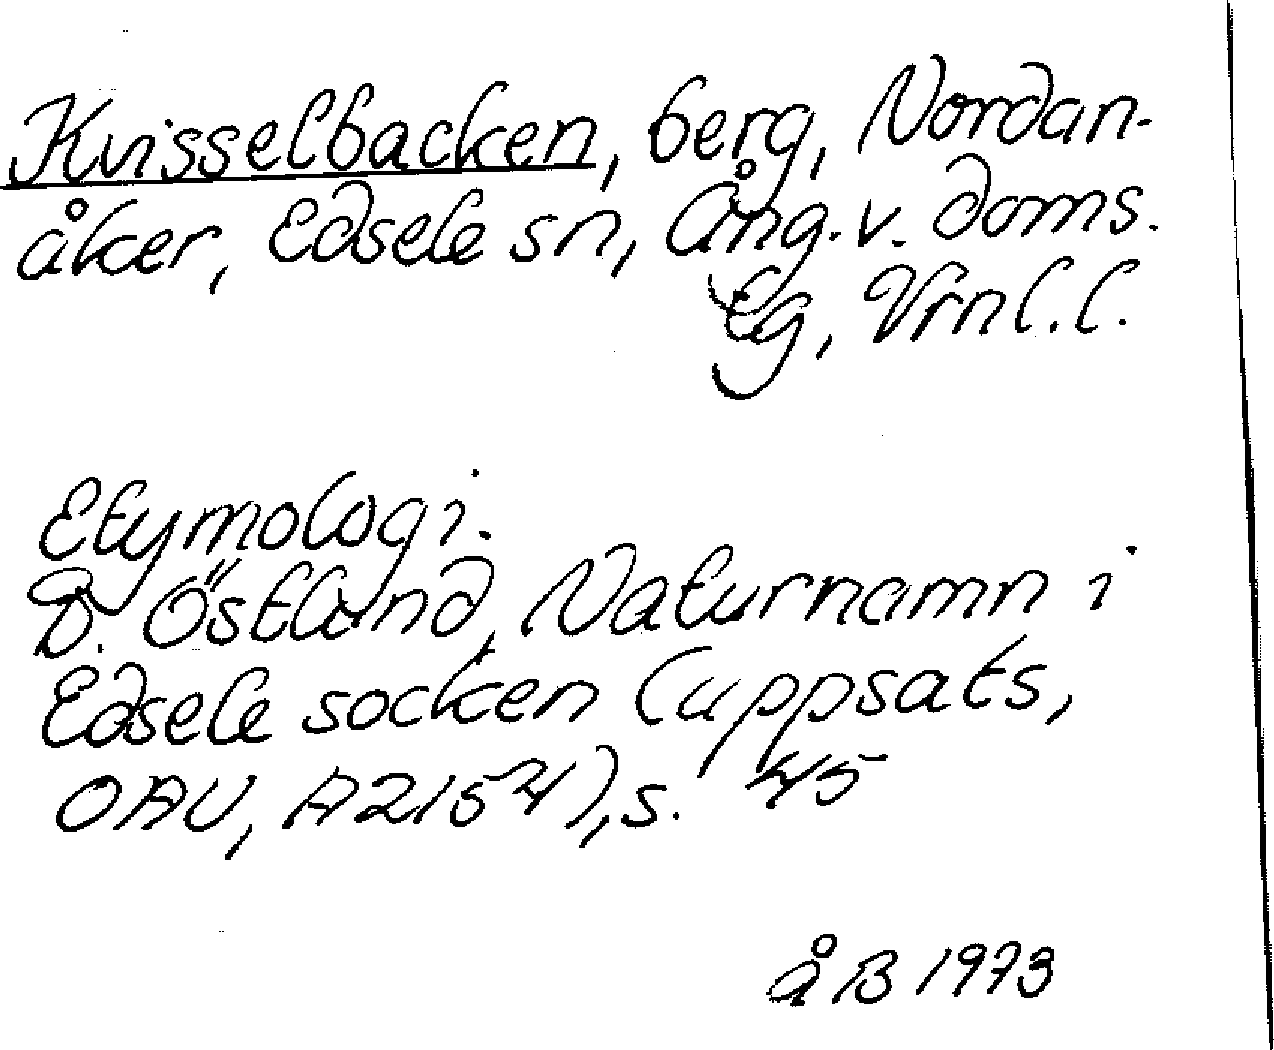 Kvisselbacken, berg, Nordan-
åker, Edsele sn, Ång. v. doms.
lg, Vrnl.l.
Etymologi.
B. Östlund, Naturnamn i
Edsele socken (uppsats,
OAU, A2154), s. 45
åB 1973